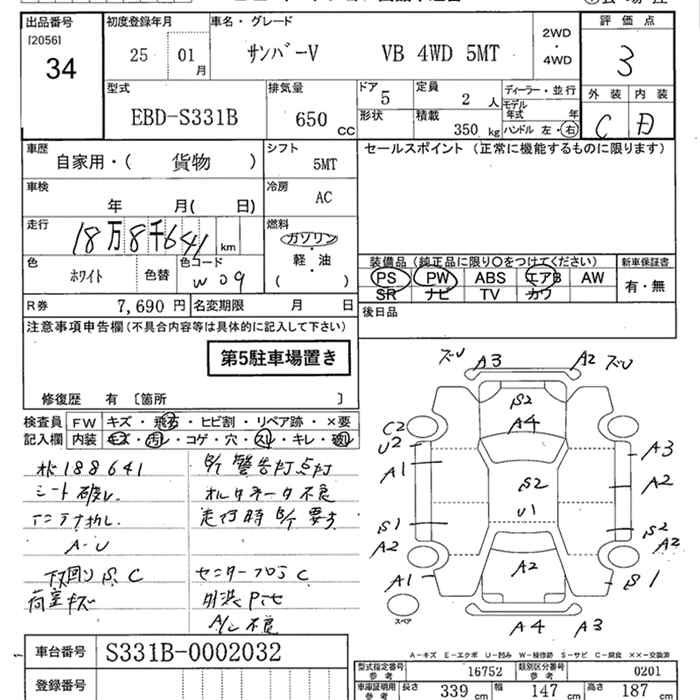 出品番号 初度登録年月 車名・グレード 評価点
[2056] 34 25 01月 サンバーV VB 4WD 5MT 2WD・4WD 3
型式 排気量 ドア 定員 ディーラー・並行 外装 内装
EBD-S331B 650 CC 5 2 人 モデル年式 年 C D
形状 積載 350 kg ハンドル 左・右
車歴 シフト セールスポイント (正常に機能するものに限ります)
自家用・( 貨物 ) 5MT
車検 冷房
年 月( 日) AC
走行 燃料
18万8千641 km ガソリン
色 色替 色コード 軽・油
ホワイト W09 ( )
装備品 (純正品に限り○をつけてください) 新車保証書
PS PW ABS エアB AW 有・無
SR ナビ TV カワ
R券 7,690 円 名変期限 月 日 後日品
注意事項申告欄 (不具合内容等は具体的に記入して下さい)
第5駐車場置き
修復歴 有 〔箇所 〕
検査員記入欄 FW キズ・飛石・ヒビ割・リペア跡・×要
内装 キズ・汚レ・コゲ・穴・スレ・キレ・破レ
188641
シート破レ
アンテナ折レ
A-U
下回り S, C
荷室キズ
警告灯点灯
オルタネータ不良
走行時 要
センターフロアC
A/C不良
ズレ A3 A2 ズレ
S2
A4
C2
U2
A1
A3
A2
S2
U1
S1
A2
S2
A2
A2
A1
S1
スペア
A4 A3
A-キズ E-エクボ U-凹み W-補修跡 S-サビ C-腐食 ××-交換済
車台番号 S331B-0002032
登録番号
型式指定番号 参考 16752 類別区分番号 参考 0201
車庫証明用 参考 長さ 339 cm 幅 147 cm 高さ 187 cm